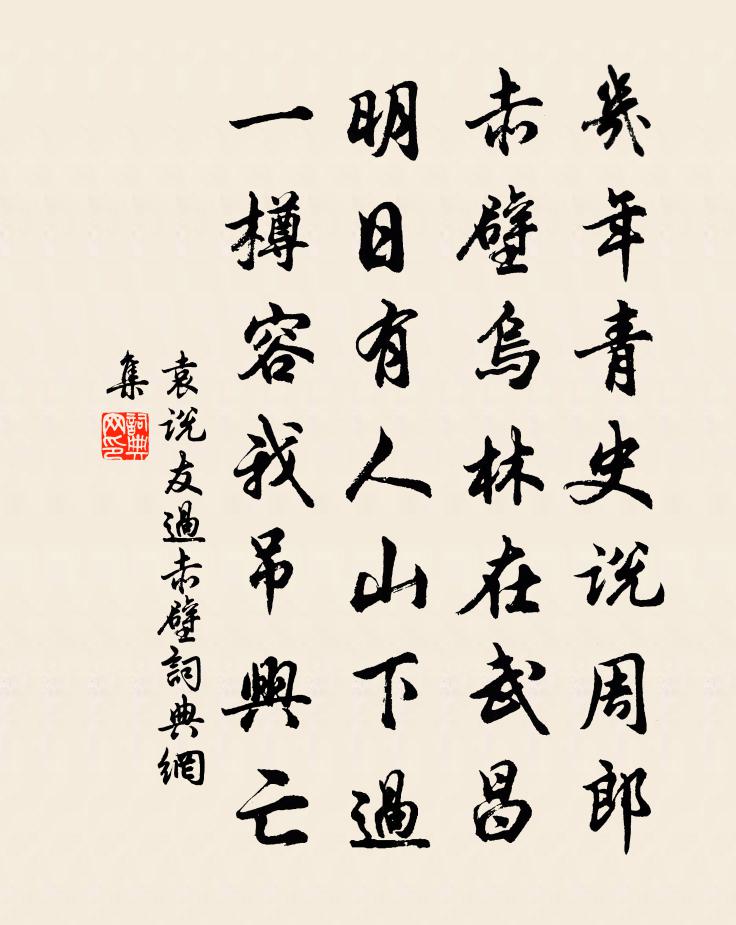 幾年青史説周郎
赤壁烏林在武昌
明日有人山下過
一樽容我吊興亡
袁説友過赤壁詞典網
集
詞典
网印